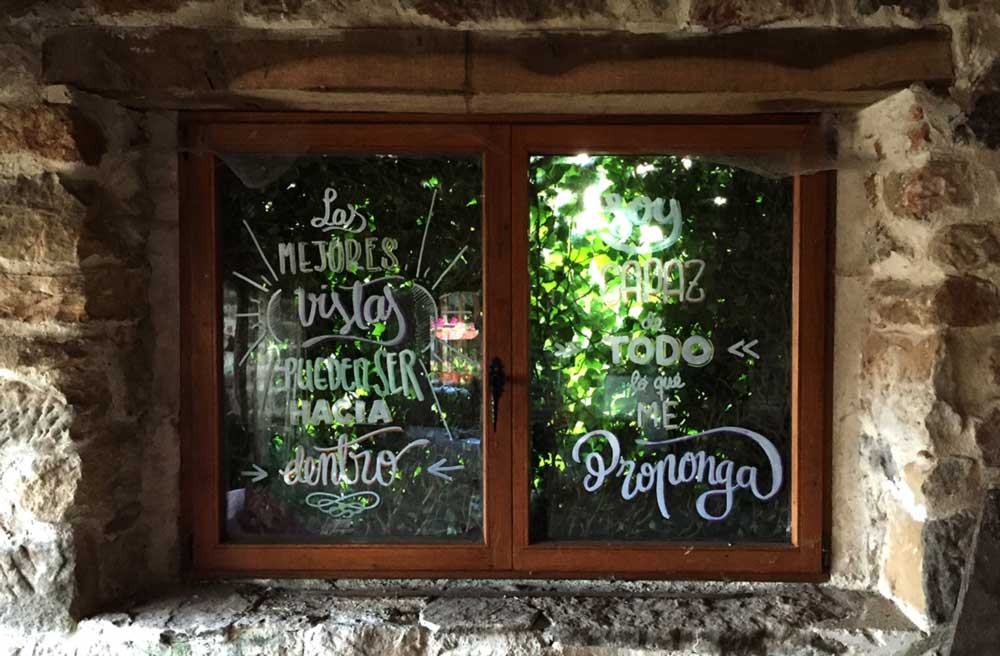 Las
MEJORES
vistas
PUEDEN SER
HACIA
dentro
Soy
CAPAZ
de
TODO
lo que
ME
Proponga